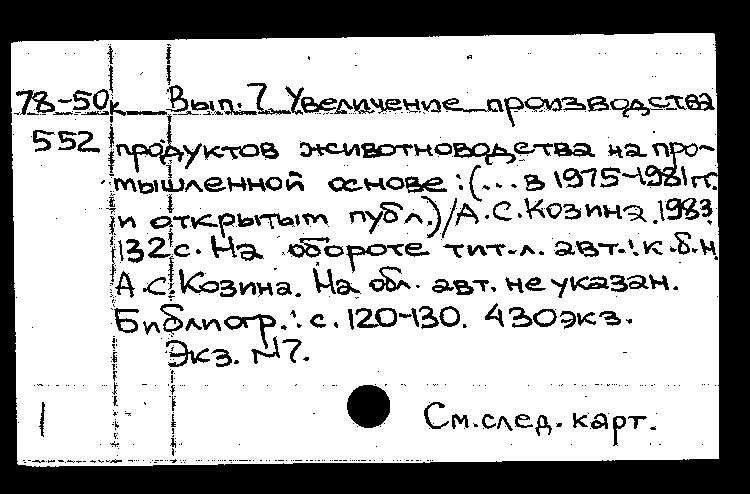 78-50к Вып. 7. Увеличение производства
552 продуктов животноводства на про-
мышленной основе: (... в 1975-1981 гг.
и открытым публ.)/А.С.Козина. 1983.
132с. На обороте тит.л. авт.: к.б.н.
А.С.Козина. На обл. авт. не указан.
Библиогр.: с. 120-130. 430экз.
Экз. №7.
1 См.след. карт.